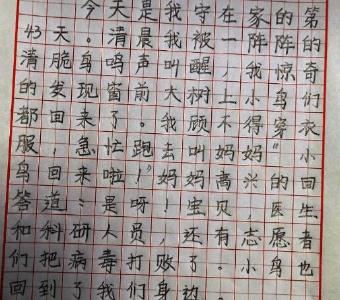 今天是我守在家的第
43天。清晨我被一阵阵的
清脆鸟鸣声叫醒，我惊奇
的发现窗前大树上小鸟们
都回来了。我顾不得穿衣
服，急忙跑去叫妈妈“小
鸟回来啦！”妈妈高兴的回
答道：是呀！宝贝，医生
和科研人员，还有志愿者
们把病毒打败了。小鸟也
回到了我们身边。